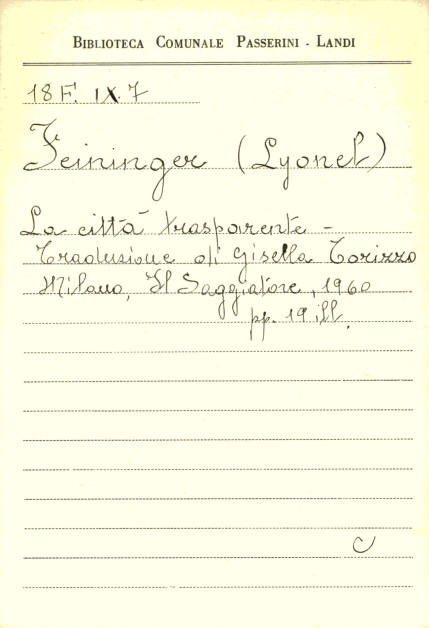 BIBLIOTECA COMUNALE PASSERINI - LANDI
18 F. IX. 7
Feininger (Lyonel)
La città trasparente -
Traduzione di Gisella Torizzo
Milano, Il Saggiatore, 1960
pp. 19 ill.
C